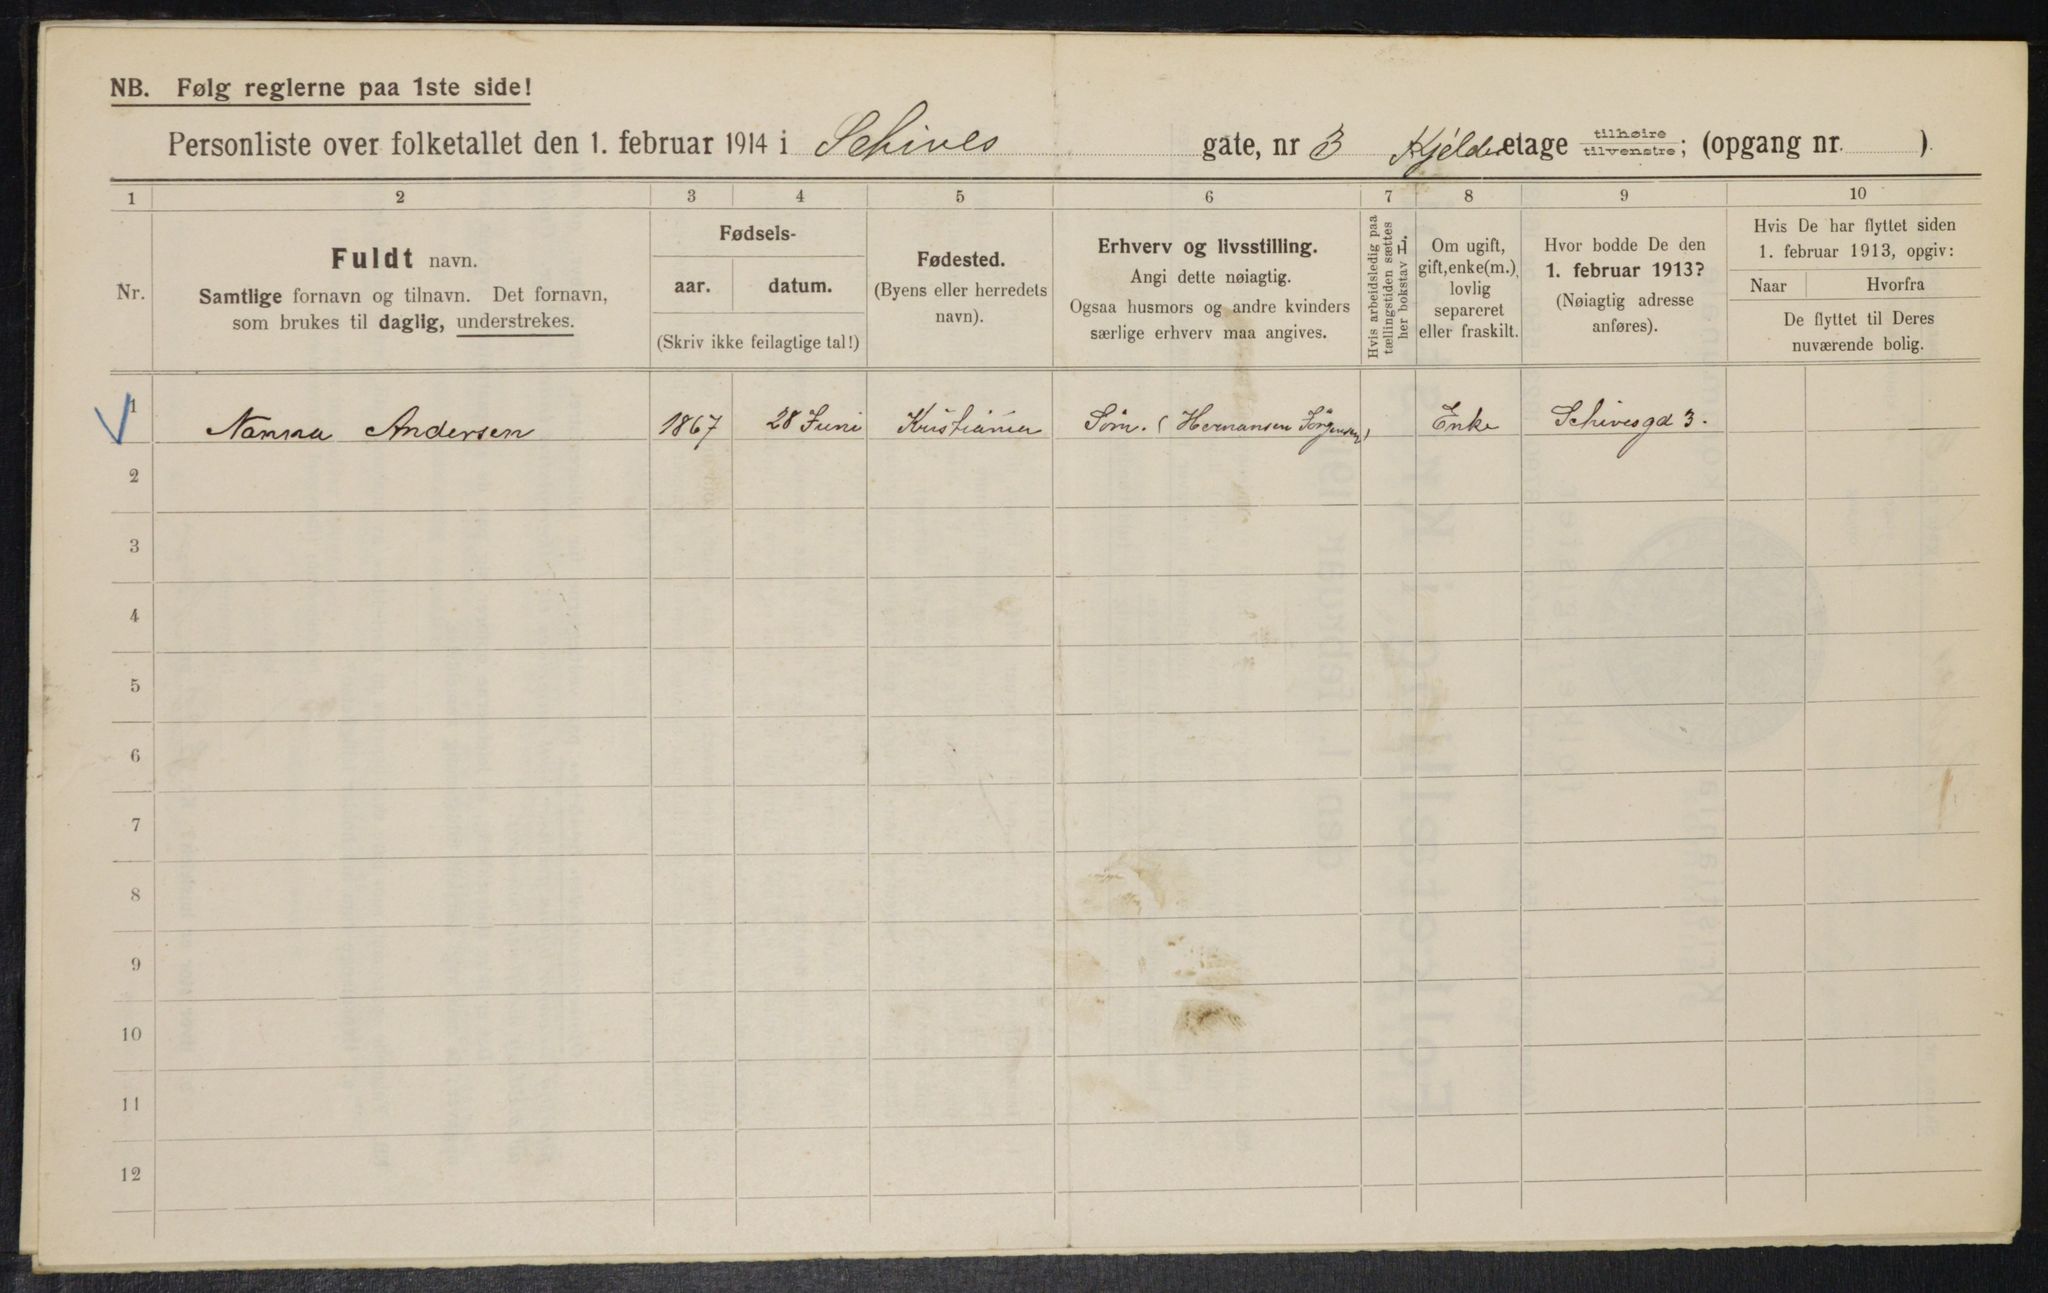 NB. Følg reglerne paa 1ste side!
Personliste over folketallet den 1. februar 1914 i Schives gate, nr 3 Kjelder etage tilhøire tilvenstre; (opgang nr. )
1 2 3 4 5 6 7 8 9 10
Nr.
Fuldt navn.
Samtlige fornavn og tilnavn. Det fornavn,
som brukes til daglig, understrekes.
Fødsels-
aar. datum.
(Skriv ikke feilagtige tal!)
Fødested.
(Byens eller herredets
navn).
Erhverv og livsstilling.
Angi dette nøiagtig.
Ogsaa husmors og andre kvinders
særlige erhverv maa angives.
Hvis arbeidsledig paa
tællingstiden sættes
her bokstav L.
Om ugift,
gift, enke(m.),
lovlig
separeret
eller fraskilt.
Hvor bodde De den
1. februar 1913?
(Nøiagtig adresse
anføres).
Hvis De har flyttet siden
1. februar 1913, opgiv:
Naar Hvorfra
De flyttet til Deres
nuværende bolig.
1 Nanna Andersen 1867 28 Juni Kristiania Söm. (Hermansen Jörgensen) Enke Schivesgd 3.
2
3
4
5
6
7
8
9
10
11
12